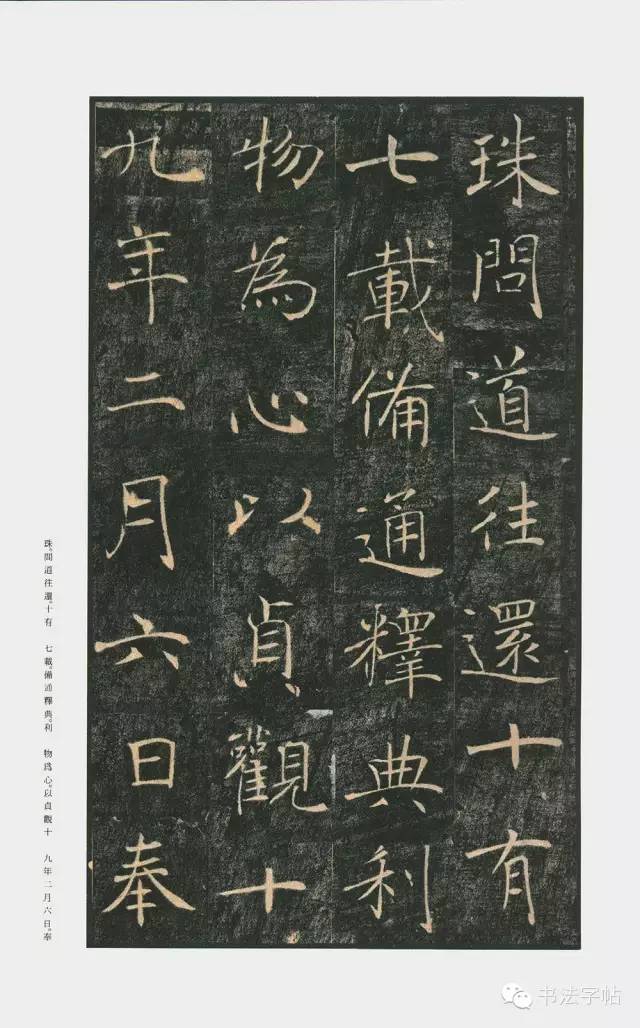 珠問道往還十有
七載備通釋典利
物為心以貞觀十
九年二月六日奉
珠。問道往還。十有 七載。備通釋典。利 物爲心。以貞觀十 九年二月六日。奉
书法字帖